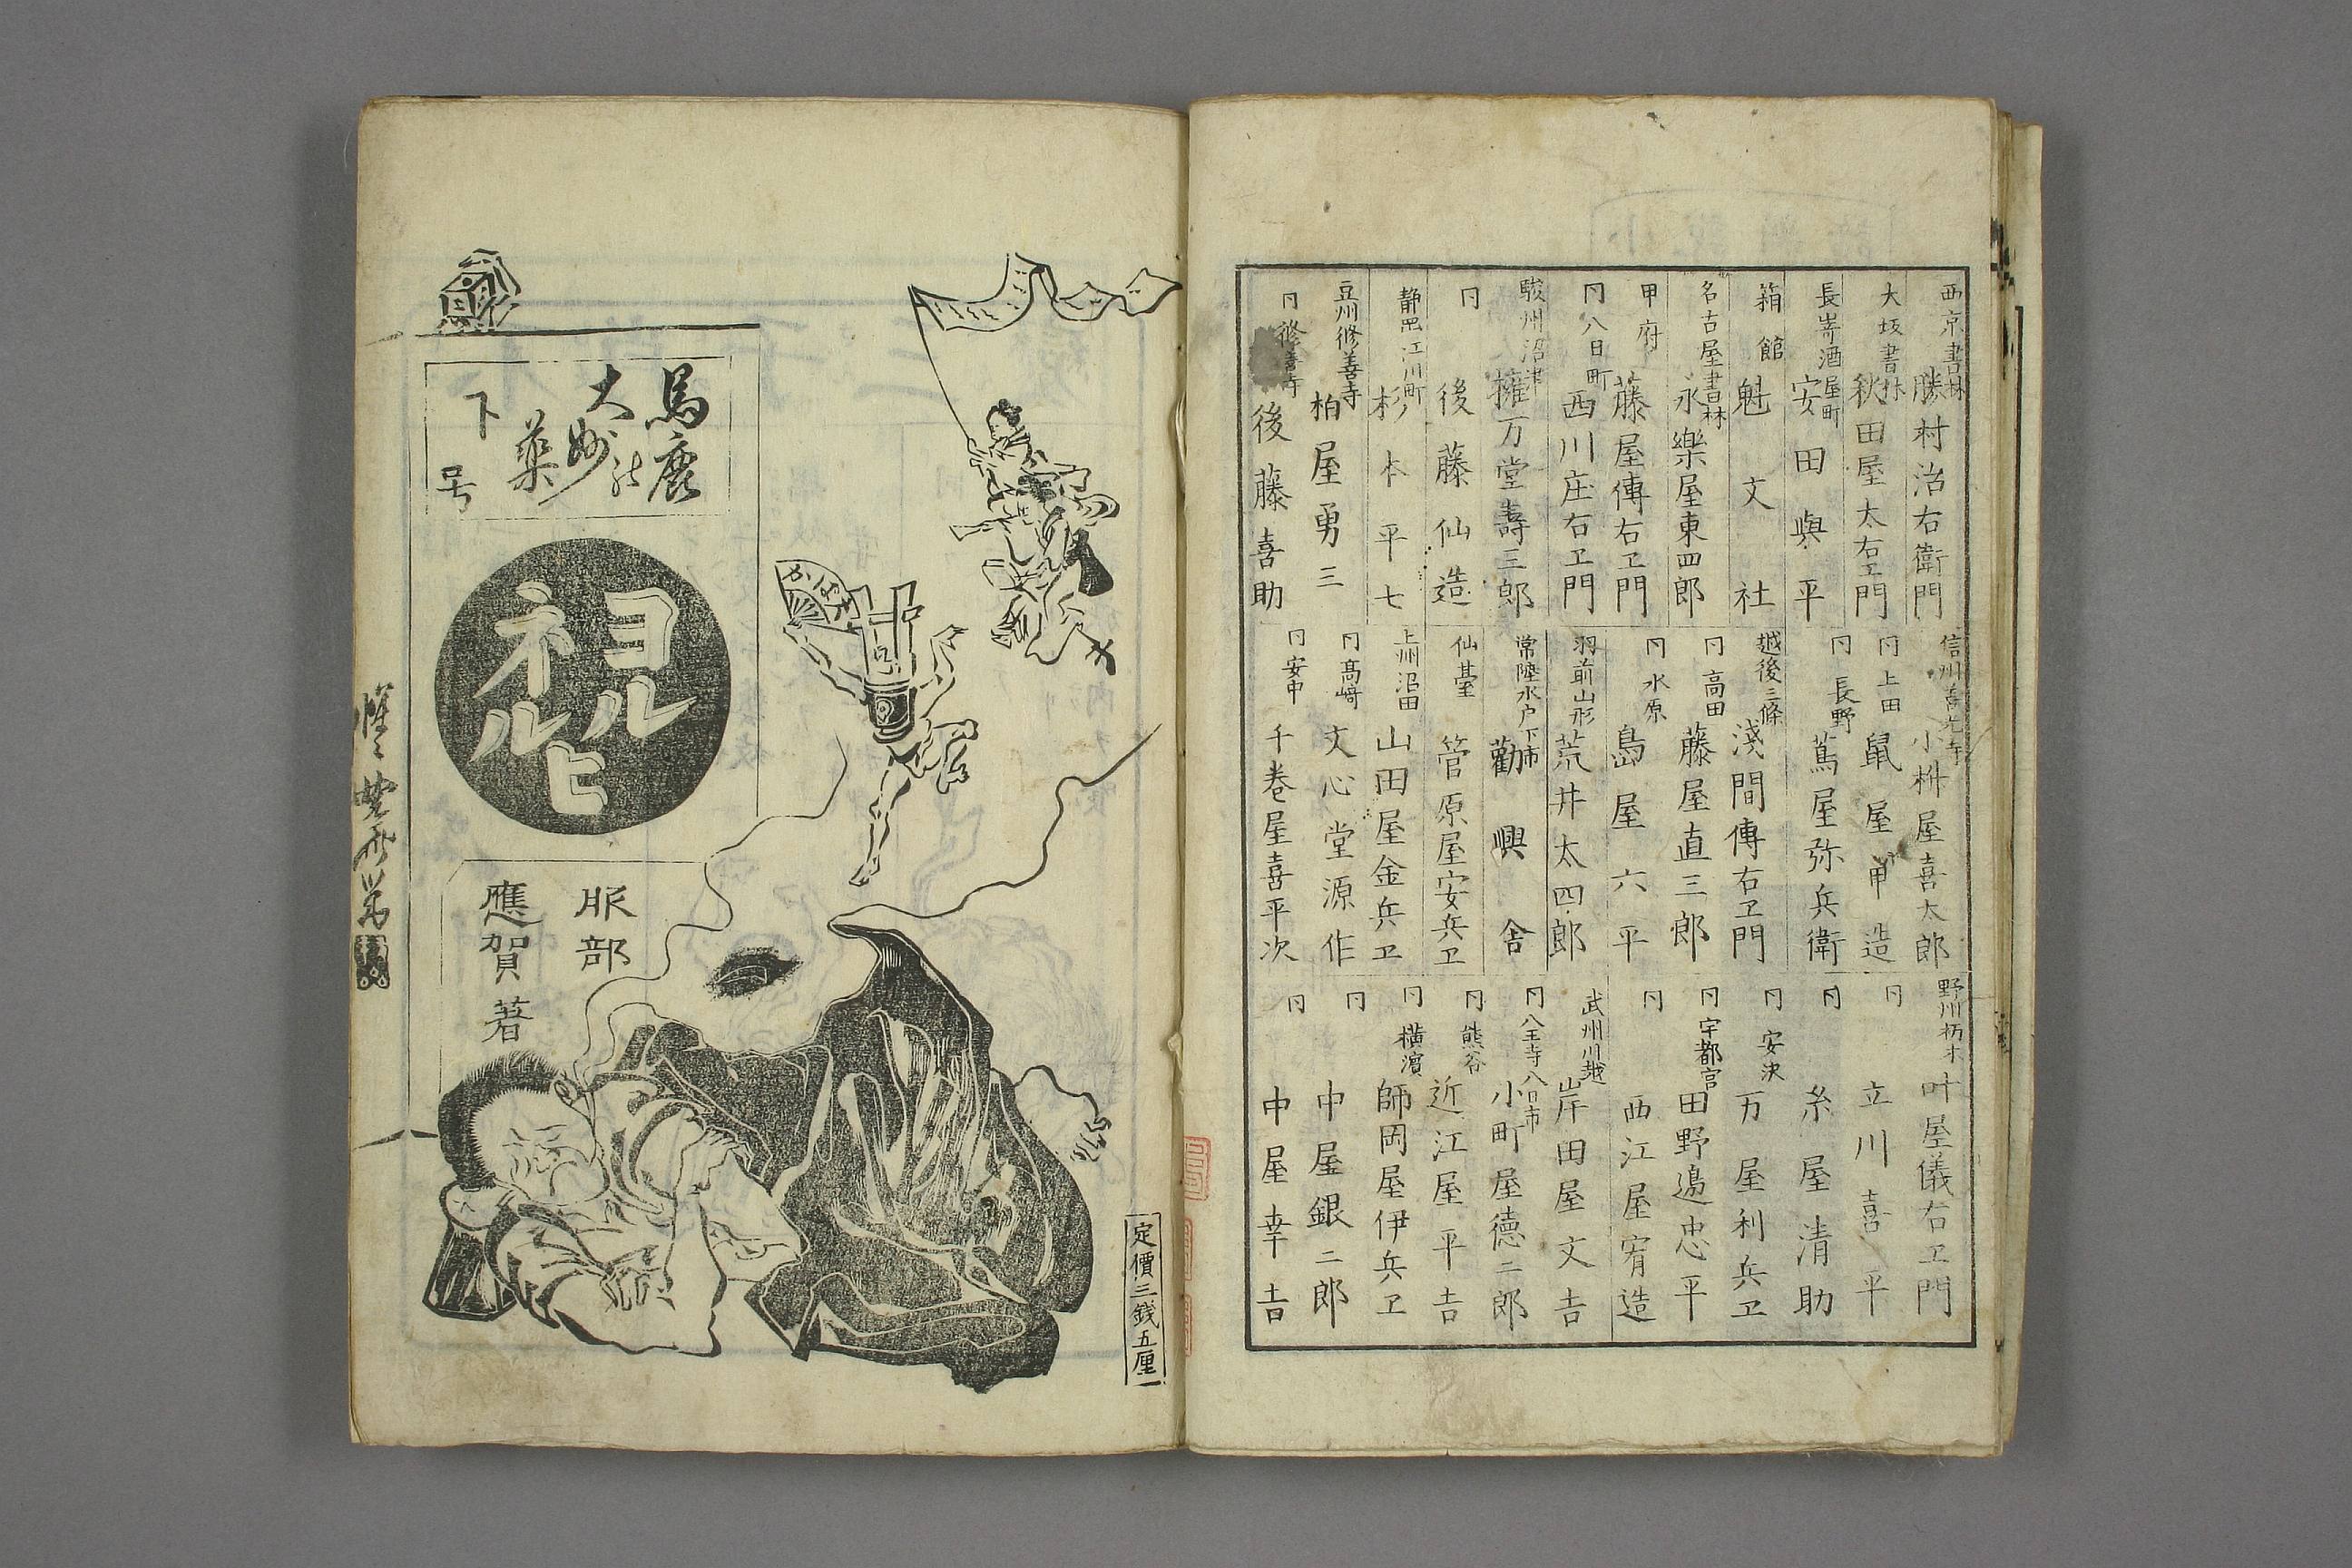 西京書林 勝村治右衛門
大坂書林 秋田屋太右エ門
長崎酒屋町 安田與平
箱館 魁文社
名古屋書林 永樂屋東四郎
甲府 藤屋傳右エ門
同八日町 西川庄右エ門
駿州沼津 擁万堂壽三郎
同 後藤仙造
静岡江川町 杉本平七
豆州修善寺 柏屋勇三
同修善寺 後藤喜助
信州善光寺 小枡屋喜太郎
同上田 鼠屋甲造
同長野 蔦屋弥兵衛
越後三條 淺間傳右エ門
同高田 藤屋直三郎
同水原 島屋六平
羽前山形 荒井太四郎
常陸水戸下市 勸興舎
仙臺 管原屋安兵エ
上州沼田 山田屋金兵エ
同髙﨑 文心堂源作
同安中 千巻屋喜平次
野州栃木 叶屋儀右エ門
同 立川喜平
同 糸屋清助
同安決 万屋利兵エ
同宇都宮 田野邉忠平
同 西江屋宥造
武州川越 岸田屋文吉
同八王寺八日市 小町屋徳二郎
同熊谷 近江屋平吉
同横濱 師岡屋伊兵エ
同 中屋銀二郎
同 中屋幸吉
馬鹿
大妙
藥
下号
ヨル
ネル
ヒ
服部
應賀著
定價三錢五厘